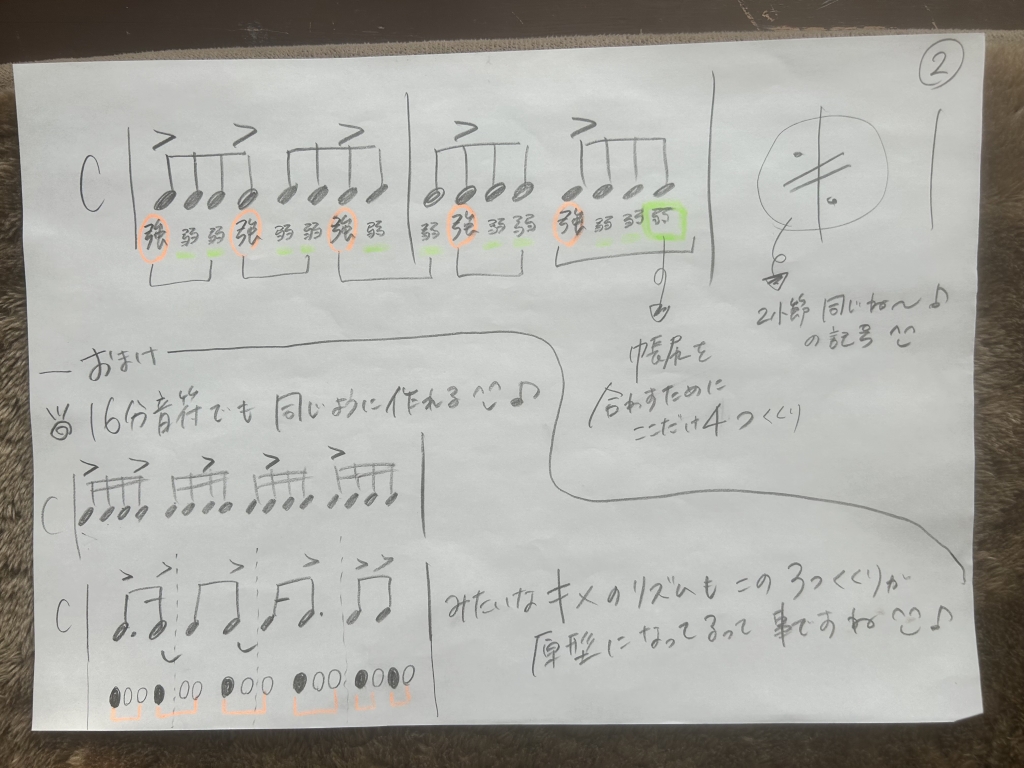 ②
C
強 弱 弱 強 弱 弱 強 弱 弱 強 弱 弱 強 弱 弱 弱
2小節 同じね〜♪
の記号
帳尻を
合わすために
ここだけ4つくくり
おまけ
16分音符でも 同じように作れる ♪
C
C
みたいな キメのリズムも この3つくくりが
原型になってるって 事ですね ♪